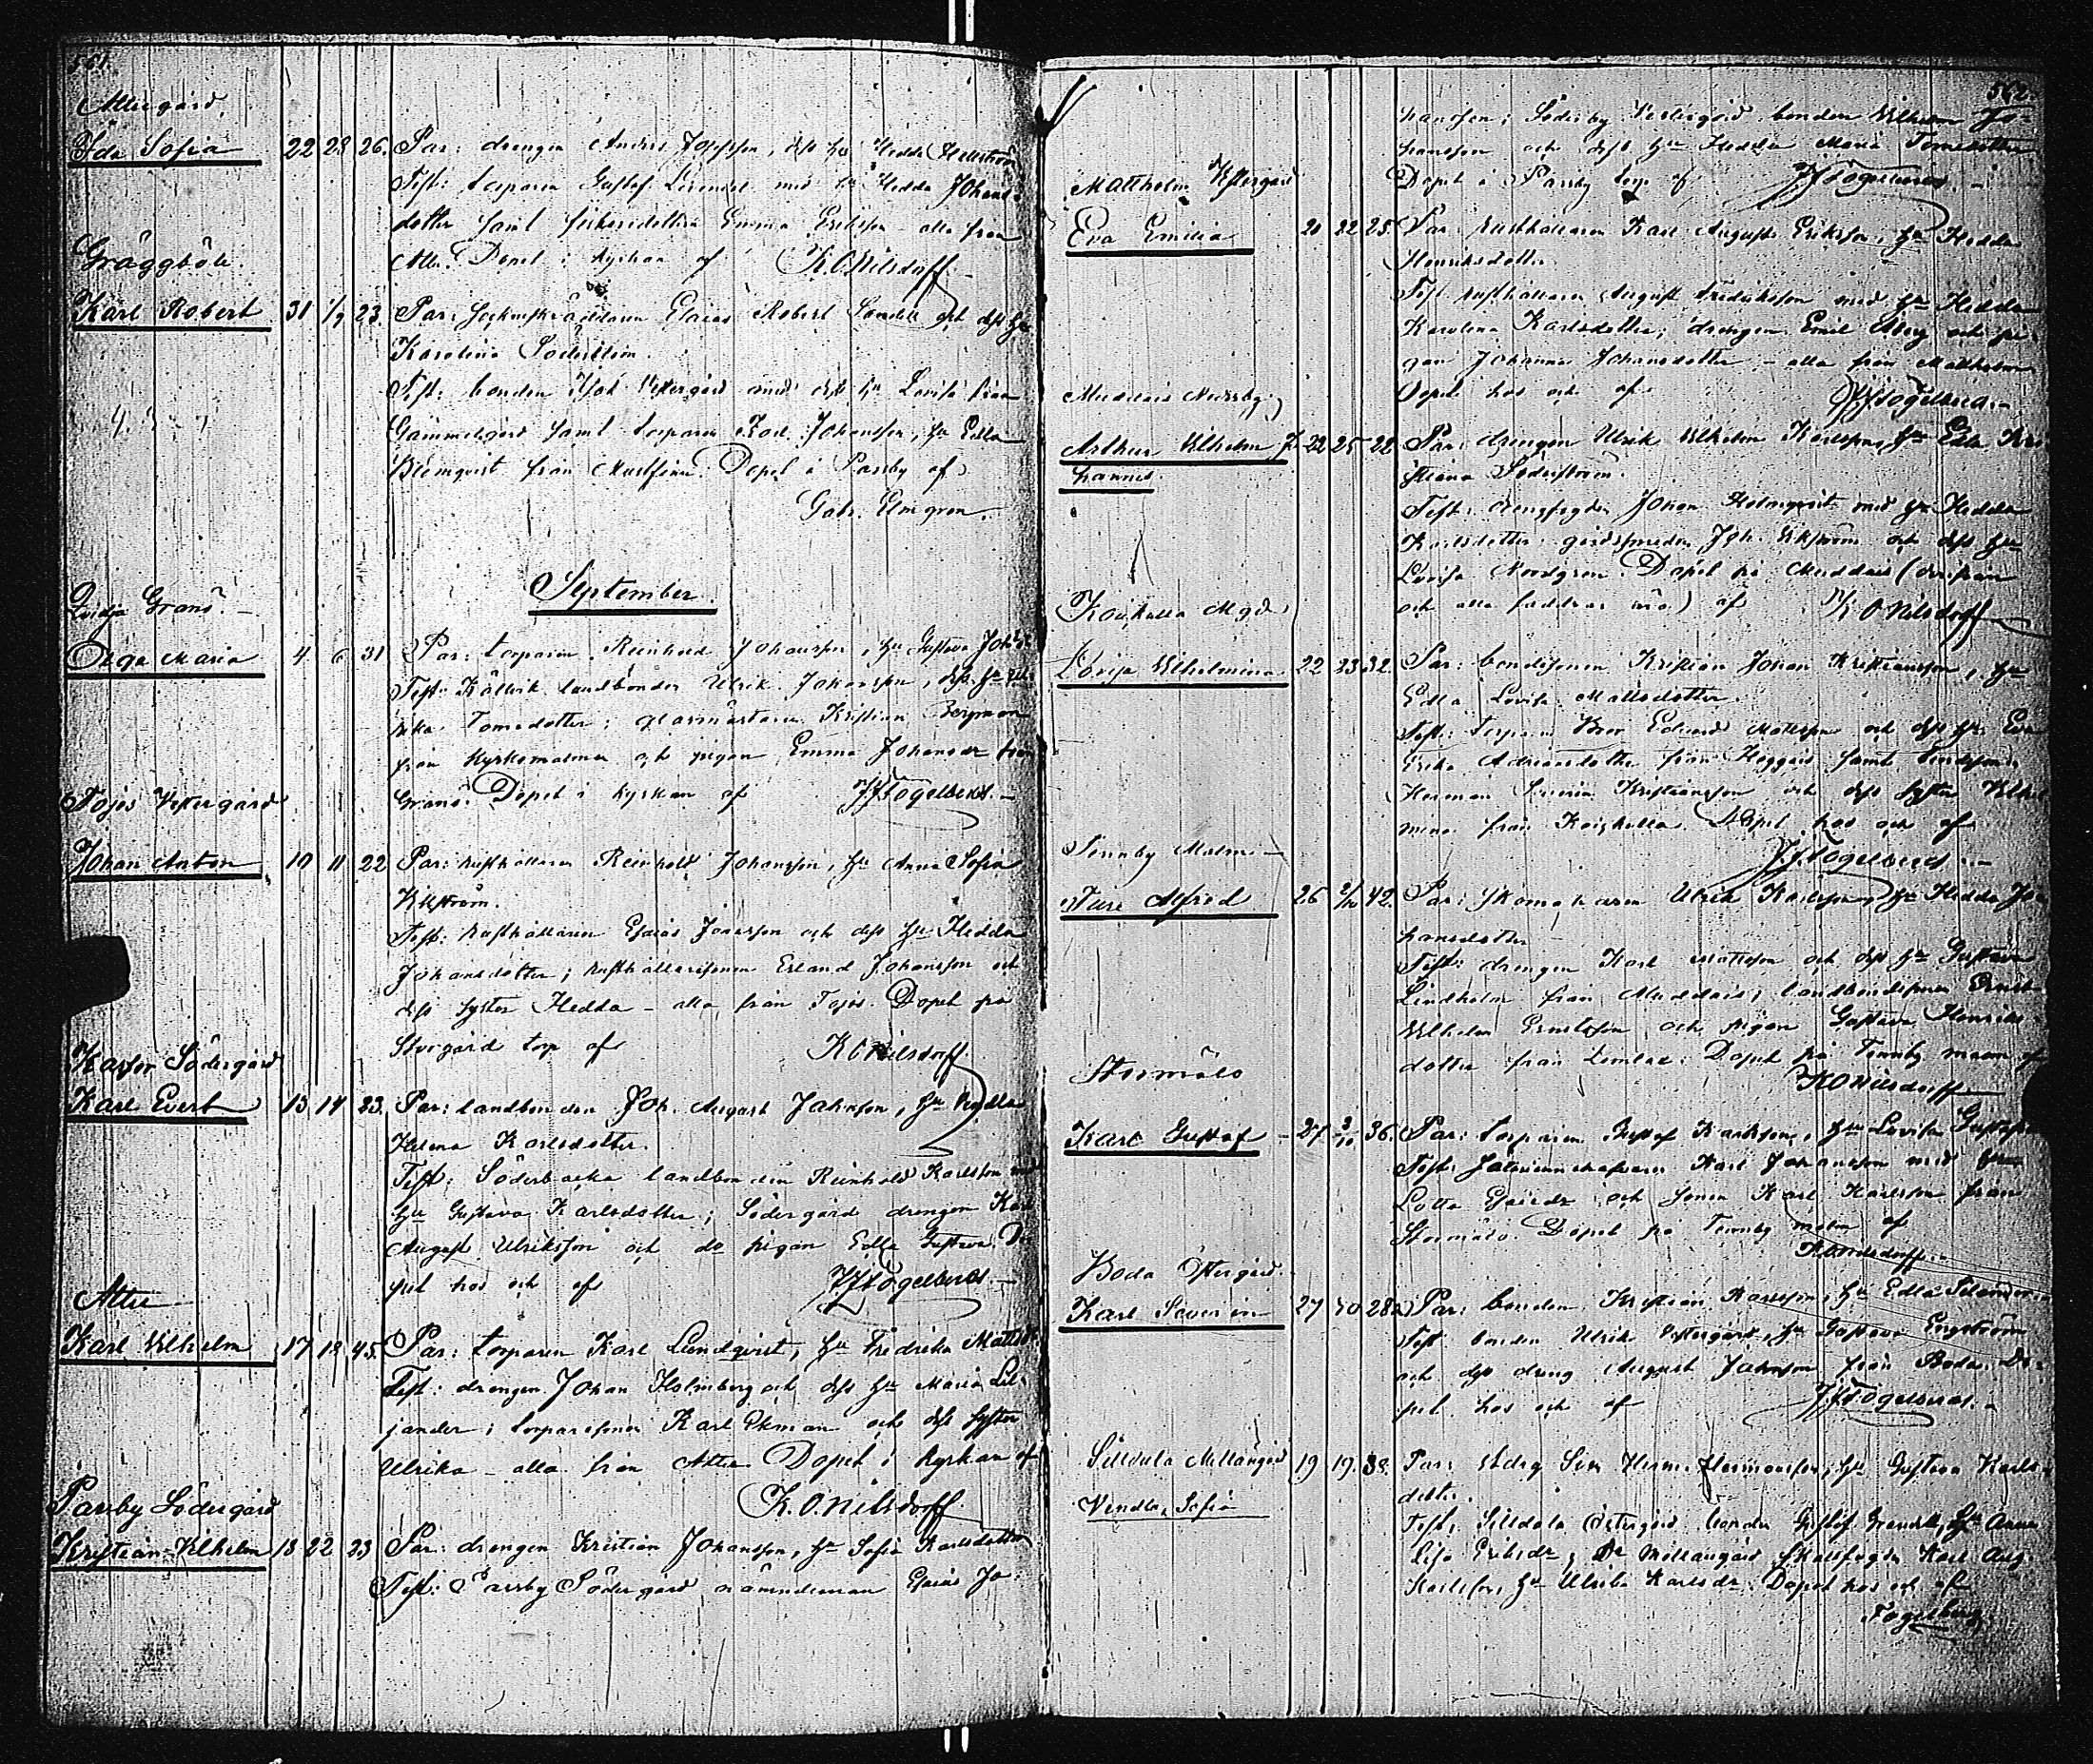 561.
Attu gård
Ida Sofia 22 23 26. Par: drengen Andrs Josefsson, dess hu Hedda Hellström
Test: torparen Gustaf med hu Hedda Johans-
dotter samt Emma Eriksson alla från
Attu. Döpet i kyrkan af K. O. Nilsdorff
Gräggböle.
Karl Robert 31 1/9 23. Par: Sockenskräddaren Esaias Robert Sandell och dess hu
Karolina Söderström.
Test: bonden Isak Westergård med dess hu Lovisa från
Gammelgård samt torparen Karl Johansson, hu Edla
Blomqvist från Mustfinn. Döpet i Parsby af
Gabr. Elmgren.
September.
Qvidja Granö.
Olga Maria 4. 6 31 Par: torparen Reinhold Johansson, hu Gustava Johdr
Test: Källvik landbonden Ulrik Johansson, dess hu Ul-
rika Tomsdotter; glasmästaren Kristian Bergman
från Kyrkomalmen och pigan Emma Johansdr från
Granö. Döpet i kyrkan af JJFogelberg.
Tojos Westergård
Johan Anton 10 11 22 Par: rusthållaren Reinhold Johansson, hu Anna Sofia
Killström.
Test: rusthållaren Esaias Jonasson och dess hu Hedda
Johansdotter; rusthållaresonen Erland Johansson och
dess syster Hedda – alla från Tojos. Döpet på
Storgård torp af K O Nilsdorff.
Karfor Södergård
Karl Evert 13 14 23. Par: landbonden Joh. August Johnsson, hu Edla
Helena Karlsdotter.
Test: Söderbacka landbonden Reinhold Karlsson med
hu Gustava Karlsdotter; Södergård drengen Karl
August Ulriksson och do pigan Edla Gustava. Dö-
pet hos och af JJFogelberg.
Attu
Karl Wilhelm 17 18 45. Par: torparen Karl Lundqvist, hu Fredrika Mattsd.
Test: drengen Johan Holmberg och dess hu Maria Lil-
jander; torparesonen Karl Ekman och dess syster
Ulrika – alla från Attu Döpet i kyrkan af
K. O. Nilsdorff
Parsby Södergård
Kristian Wilhelm 18 22 23 Par: drengen Kristian Johansson, hu Sofia Karlsdotter
Test: Parsby Södergård nämndeman Esaias Jo-
562.
hansson; Söderby Westergård bonden Wilhelm Jo-
hansson och dess hu Hedda Maria Tomsdotter
Döpet i Parsby torp af JJFogelberg.
Mattholm Westergård
Eva Emilia 20 22 25. Par: rusthållaren Karl August Eriksson, hu Hedda
Henriksdotter.
Test: rusthållaren August Fredriksson med hu Hedda
Karolina Karlsdotter; drengen Emil Åberg och pi-
gan Johanna Johansdotter – alla från Mattholm
Döpet hos och af JJFogelberg.
Muddais
Arthur Wilhelm Jo- 22 25 22 Par: drengen Ulrik Wilhelm Karlsson, hu Edla Kri-
hannes. stiana Söderström.
Test: drengfogden Johan Holmqvist med hu Hedda
Karlsdotter; gårdssmeden Joh. Ekström och dess hu
Lovisa Nordgren. Döpet på Muddais (
och alla faddrar äro) af K O Nilsdorff
Koiskulla Mgd
Lovisa Wilhelmina 22 23 32. Par: bondesonen Kristian Johan Kristiansson, hu
Edla Lovisa Mattsdotter.
Test: Torparen Bror Edvard Mattsson och dess hu Eva
Erika Adriansdotter från Haggais samt bondeson
Herman Severin Kristiansson och dess syster Wilhel-
mina från Koiskulla. Döpet hos och af
JJFogelberg.
Tennby Malm
Ture Alfred 26 2/10 42. Par: Skomakaren Ulrik Karlsson, hu Hedda Jo-
hansdotter
Test: drengen Karl Mattsson och dess hu Gustava
Lindholm från Muddais; landbondesonen Ernst
Wilhelm Ernstsson och pigan Gustava Henriks-
dotter från Lemlax. Döpet på Tennby malm af
K O Nilsdorff
Stormälö
Karl Gustaf 27 3/10 36. Par: torparen Gustaf Karlsson, hu Lovisa Gustafsd.
Test: Karl Johansson med hu
Lotta Esaiedr och sonen Karl Karlsson från
Stormälö. Döpet på Tennby malm af
K O Nilsdorff.
Boda Östergård.
Karl Severin 27 30 28 Par: bonden Kristian Karlsson, hu Edla Selander.
Test: bonden Ulrik Westergård, hu Gustava Engström
och dess dreng August Johnsson från Boda. Dö-
pet hos och af JJFogelberg.
Silldala Mellangård 19 19. 38. Par: Herm. Hermansson, hu Gustava Karls-
Wendla Sofia dotter.
Test: Silldala Östergård bonden Gustaf Grandell, hu Anna
Lisa Eriksdr; Do Mellangård Karl Aug.
Karlsson, hu Ulrika Karlsdr. Döpet hos och af
Fogelberg.